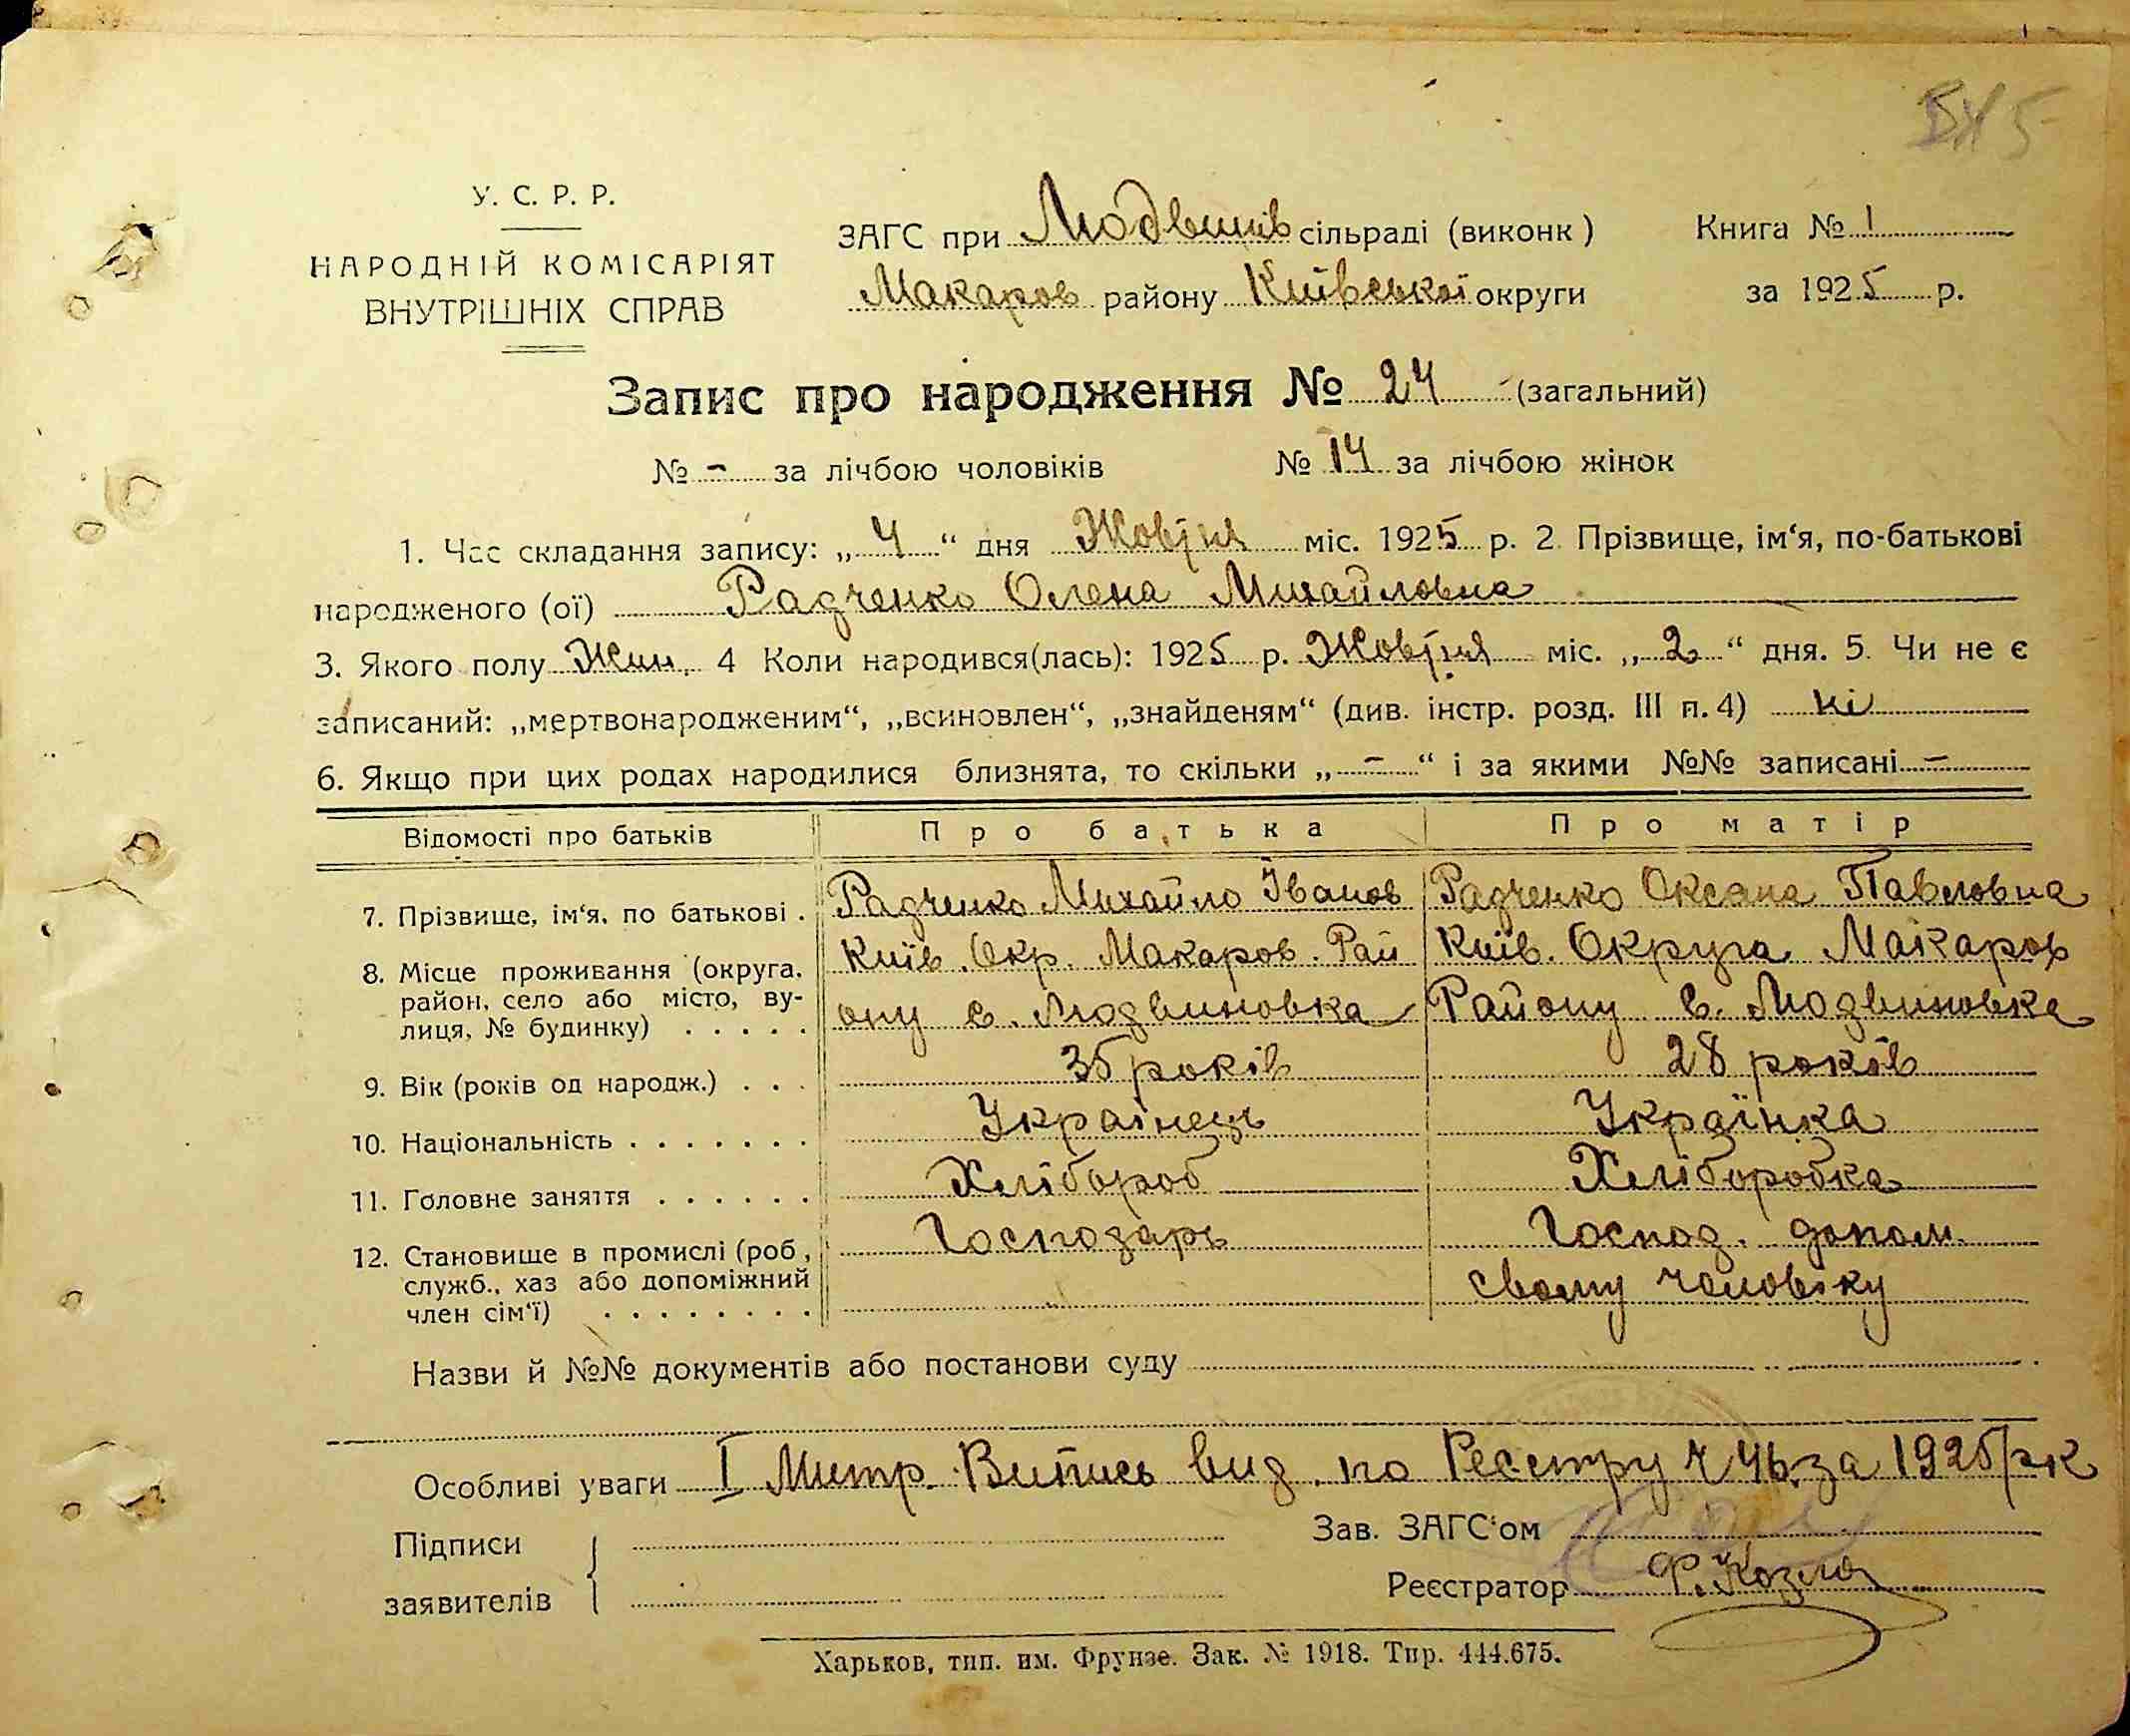 ВХ 5
У. С. Р. Р.
НАРОДНІЙ КОМІСАРІЯТ
ВНУТРІШНІХ СПРАВ
ЗАГС при Людвинів сільраді (виконк)
Макаров району Київської округи
Книга № 1
за 1925 р.
Запис про народження № 24 (загальний)
№ - за лічбою чоловіків № 14 за лічбою жінок
1. Час складання запису: „ 4 “ дня Жовтня міс. 1925 р. 2. Прізвище, ім‘я, по-батькові
народженого (ої) Радченко Олена Михайловна
3. Якого полу Жин. 4 Коли народився(лась): 1925 р. Жовтня міс. „ 2 “ дня. 5. Чи не є
записаний: „мертвонародженим“, „всиновлен“, „знайденям“ (див. інстр. розд. III п. 4) ні
6. Якщо при цих родах народилися близнята, то скільки „ - “ і за якими №№ записані -
Відомості про батьків Про батька Про матір
7. Прізвище, ім‘я, по батькові . Радченко Михайло Іванов Радченко Оксана Павловна
8. Місце проживання (округа, район, село або місто, ву-лиця, № будинку) . . . . . Київ. Окр. Макаров. Рай Київ. Округа Макаров
ону с. Людвиновка Району с. Людвиновка
9. Вік (років од народж.) . . . 35 років 28 років
10. Національність . . . . . . . Українець Українка
11. Головне заняття . . . . . . Хлібороб Хліборобка
12. Становище в промислі (роб., служб., хаз або допоміжний член сім‘ї) . . . . . . . . Господарь Господ. допом.
свому чоловіку
Назви й №№ документів або постанови суду
Особливі уваги I Метр. Випись вид. по Реєстру ч 46 за 1925 р к
Підписи
заявителів
Зав. ЗАГС‘ом
Реєстратор Ф. Козло
Харьков, тип. им. Фрунзе. Зак. № 1918. Тир. 444.675.